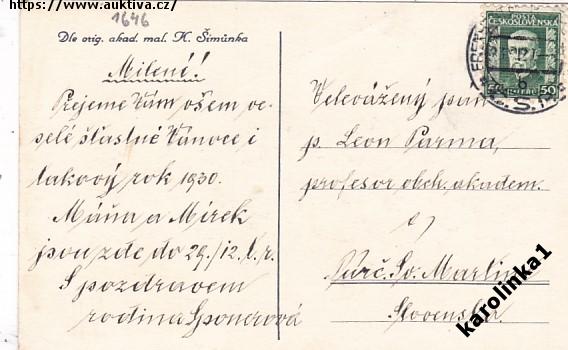 https://www.auktiva.cz/
1646
Dle orig. akad. mal. K. Šimůnka
Milené!
Přejeme Vám všem ve-
selé šťastné Vánoce i
takový rok 1930.
Máňa a Mirek
jsou zde do 29./12. t. r.
S pozdravem
rodina Sponerová
POSTA
ČESKOSLOVENSKÁ
50
Velevážený pan
p. Leon Parma,
profesor obch. akadem.
v
Turč. Sv. Martin
Slovensko.
karolinka1